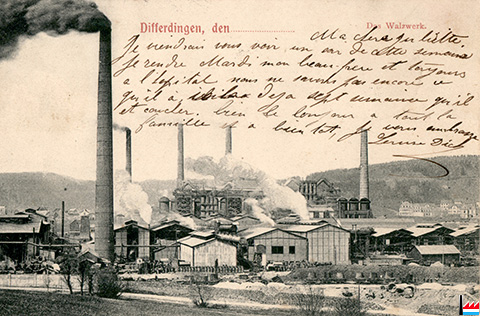 Differdingen, den
Das Walzwerk.
Ma chère Juliette
Je viendrais vous voir un de cette semaine
Je rendre Mardi mon beau père est toujours
a l'hopital nous ne savons pas encore ce
qu'il a Deja sept semaine qu'il
et coucher. bien le bonjour a tout la
famille a bientôt je vous embrasse
Louise